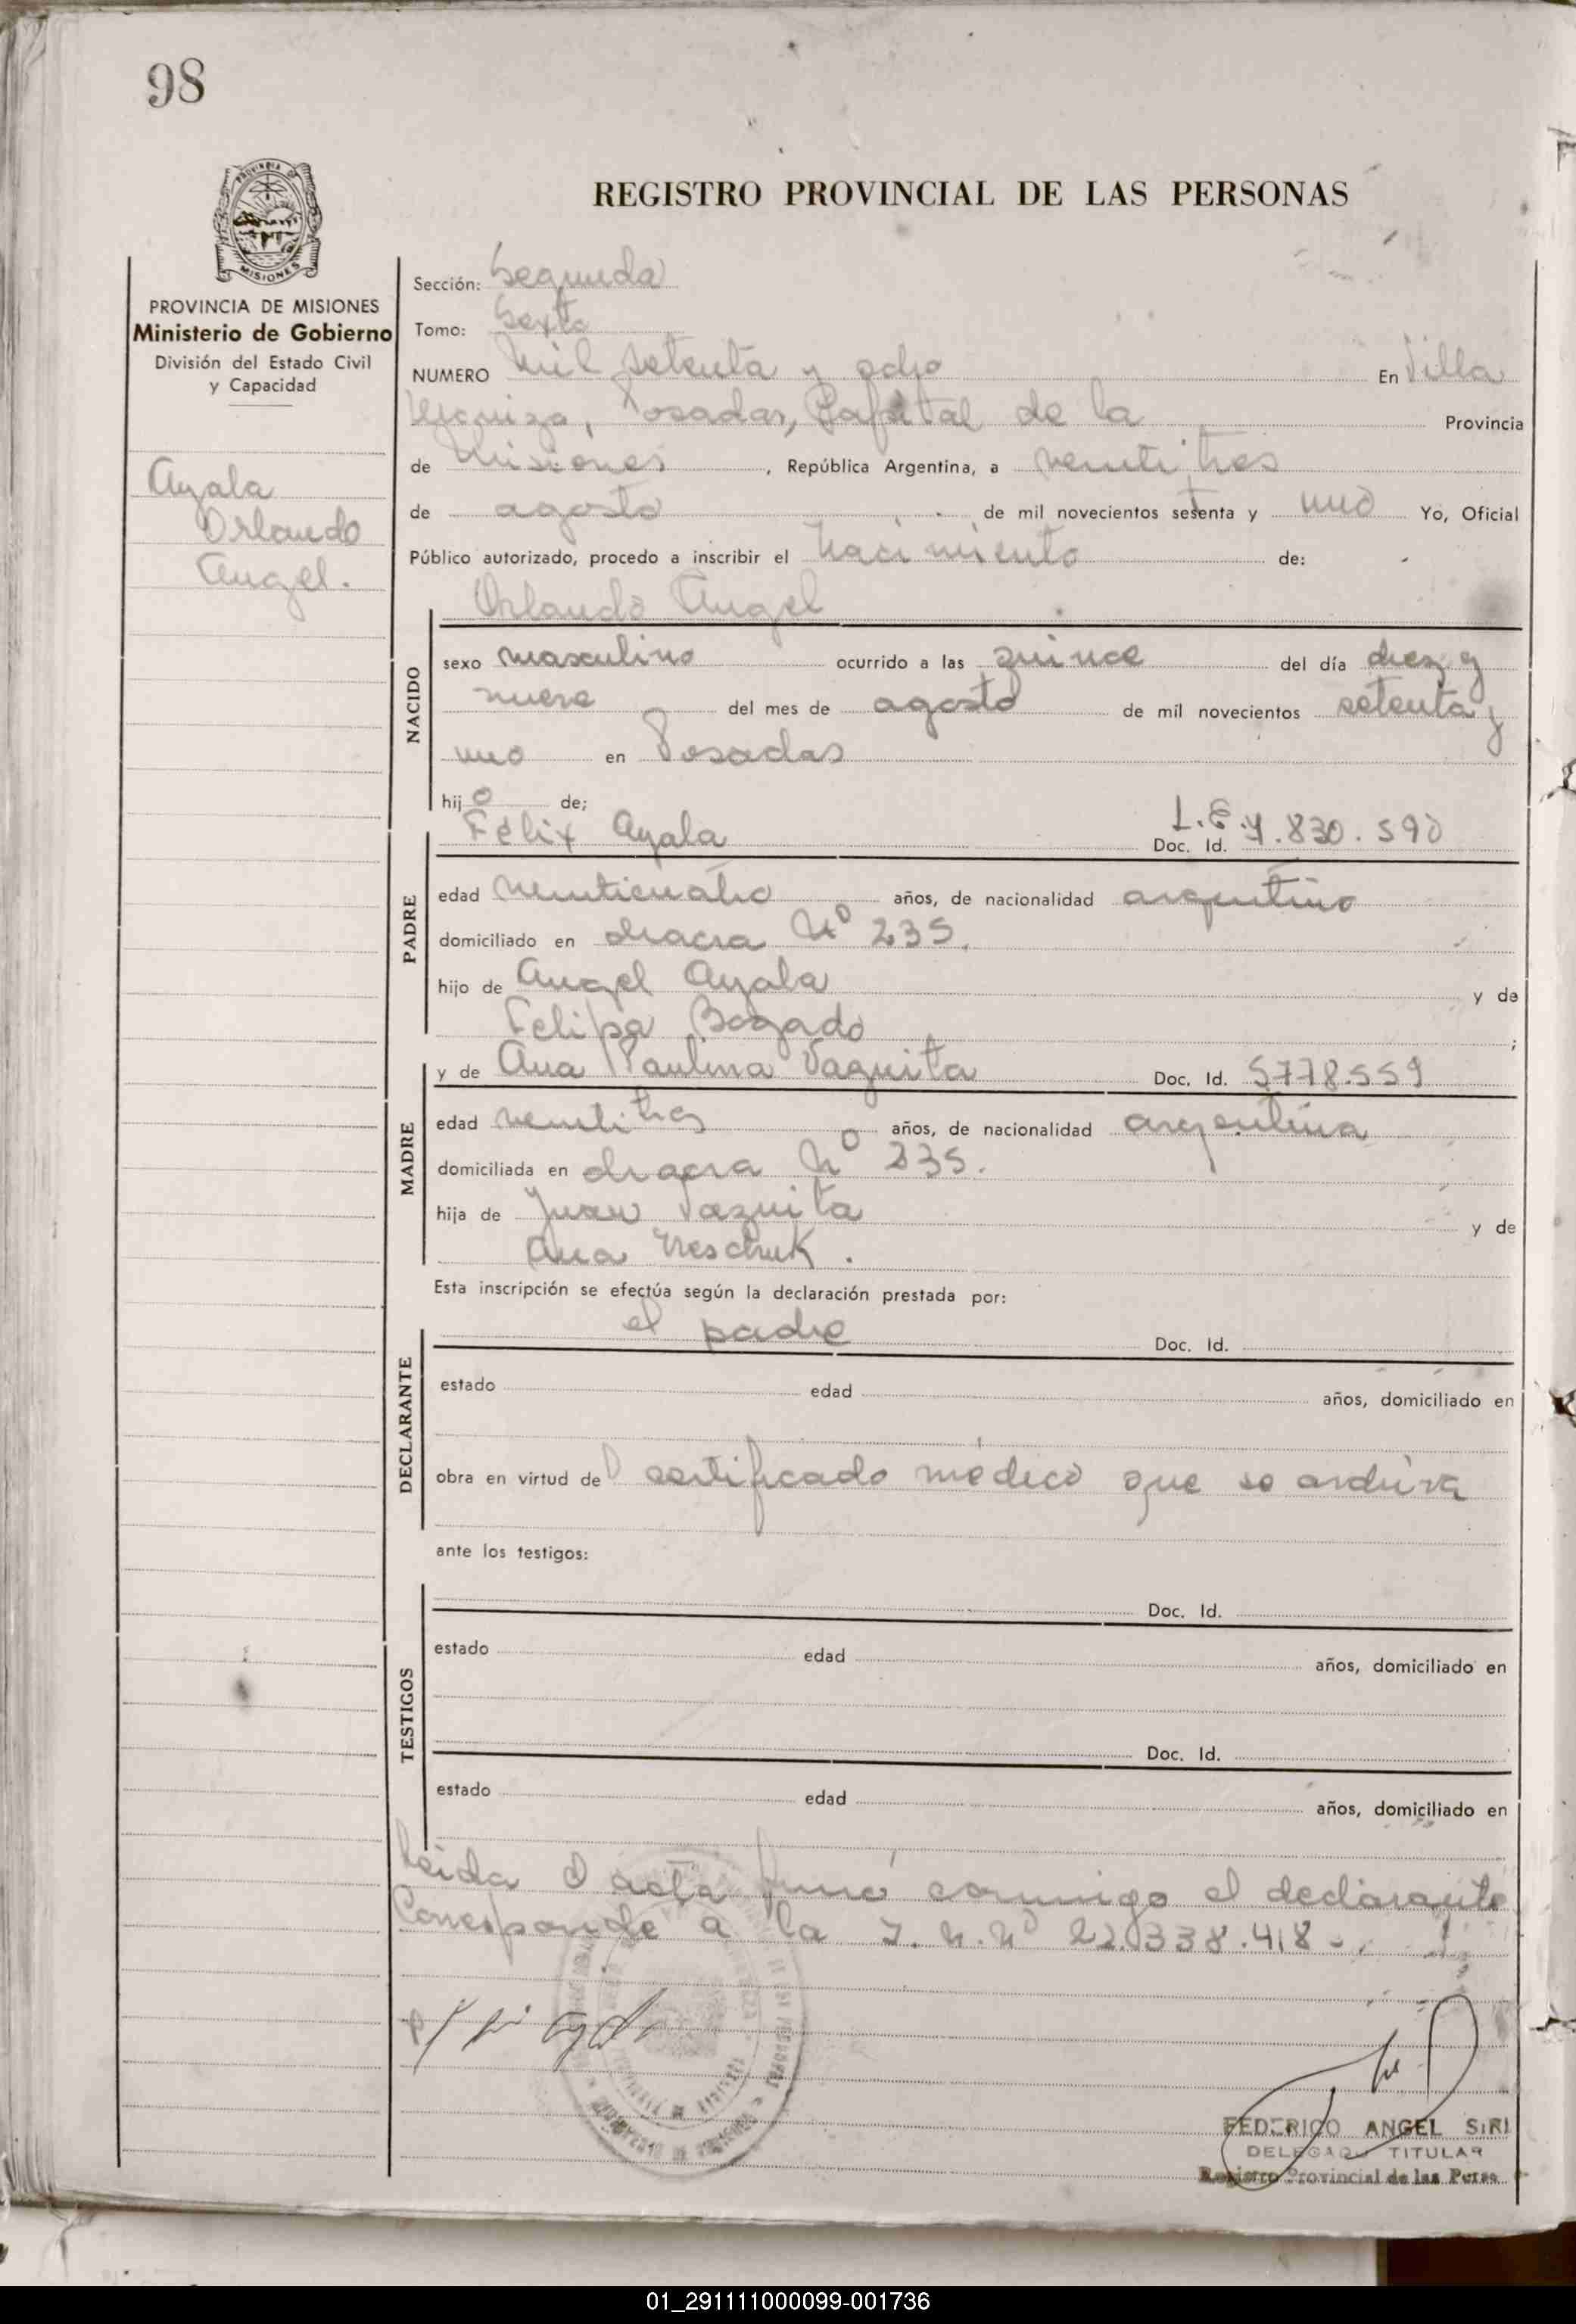 98
PROVINCIA DE MISIONES
REGISTRO PROVINCIAL DE LAS PERSONAS
PROVINCIA DE MISIONES
Ministerio de Gobierno
División del Estado Civil
y Capacidad
Ayala
Orlando
Angel.
Sección: Segunda
Tomo: Sexto
NUMERO Mil setenta y ocho En Villa
Urquiza, Posadas, Capital de la Provincia
de Misiones, República Argentina, a veintitres
de agosto de mil novecientos setenta y uno Yo, Oficial
Público autorizado, procedo a inscribir el nacimiento de:
Orlando Angel
NACIDO
sexo masculino ocurrido a las quince del día diez y
nueve del mes de agosto de mil novecientos setenta y
uno en Posadas
hijo de;
Félix Ayala L.E. Doc. Id. 7.830.590
PADRE
edad veinticuatro años, de nacionalidad argentino
domiciliado en chacra Nº 235.
hijo de Angel Ayala y de
Felipa Bogado ;
y de Ana Paulina Vaquita Doc. Id. 5778.559
MADRE
edad veintitres años, de nacionalidad argentina
domiciliada en chacra Nº 235.
hija de Juan y de
Ana
Esta inscripción se efectúa según la declaración prestada por:
el padre Doc. Id.
DECLARANTE
estado edad años, domiciliado en
obra en virtud del certificado médico que se archiva
ante los testigos:
Doc. Id.
TESTIGOS
estado edad años, domiciliado en
Doc. Id.
estado edad años, domiciliado en
Leida el acta firmó conmigo el declarante
Corresponde a la I. N. Nº 22.338.418-.
FEDERICO ANGEL SIRI
DELEGADO TITULAR
Registro Provincial de las Perso
01_291111000099-001736